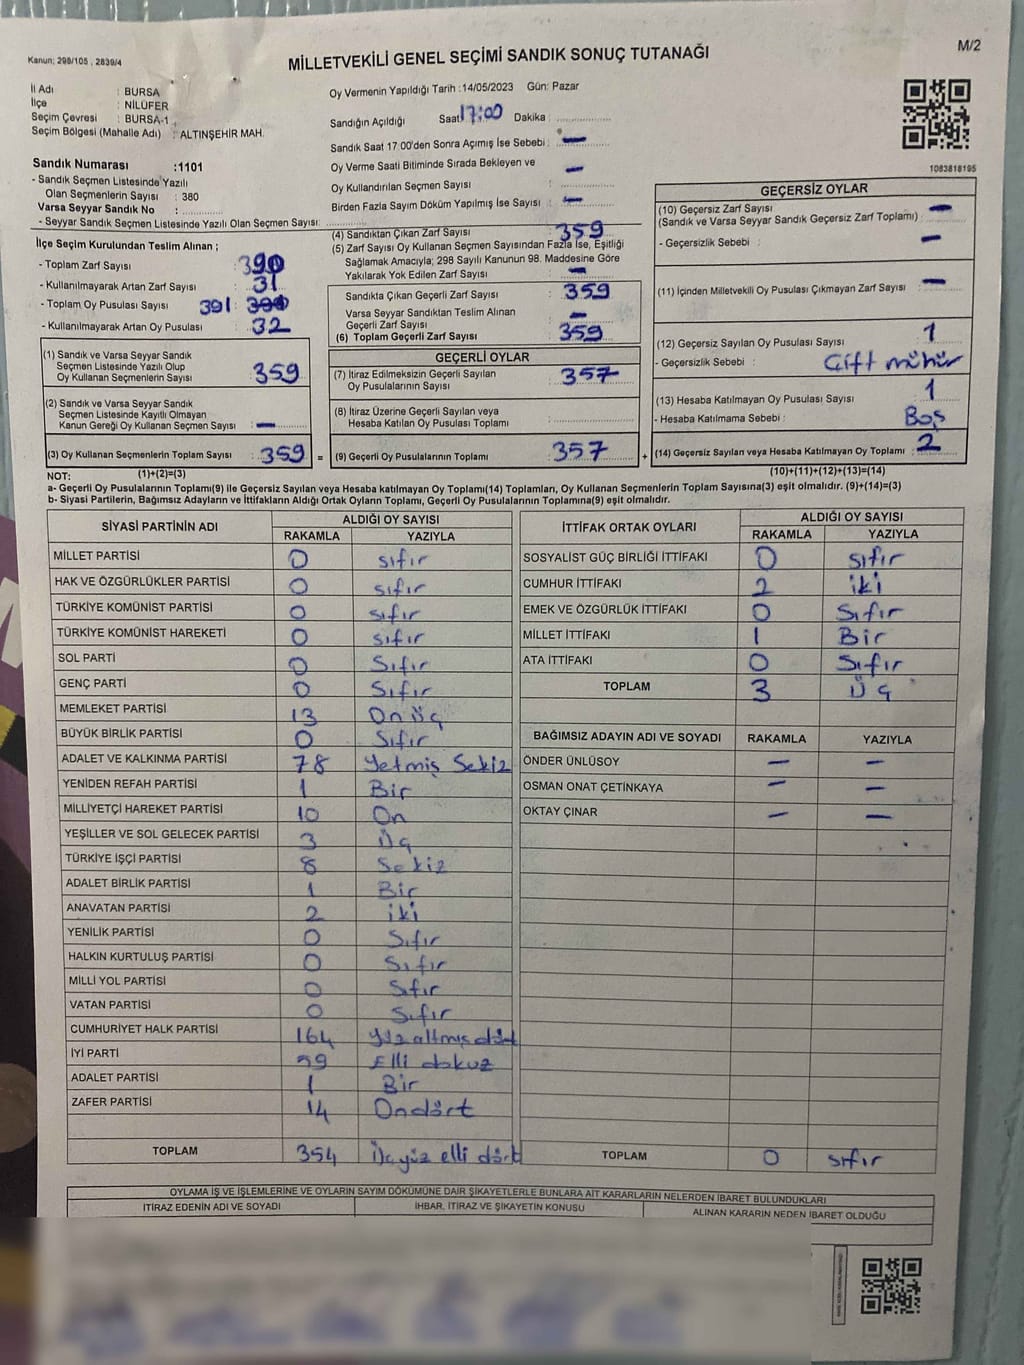 Kanun; 298/105 , 2839/4
MİLLETVEKİLİ GENEL SEÇİMİ SANDIK SONUÇ TUTANAĞI
M/2
İl Adı : BURSA
İlçe : NİLÜFER
Seçim Çevresi : BURSA-1
Seçim Bölgesi (Mahalle Adı) : ALTINŞEHİR MAH.
Sandık Numarası :1101
- Sandık Seçmen Listesinde Yazılı
Olan Seçmenlerin Sayısı : 380
Varsa Seyyar Sandık No :
- Seyyar Sandık Seçmen Listesinde Yazılı Olan Seçmen Sayısı:
Oy Vermenin Yapıldığı Tarih :14/05/2023 Gün: Pazar
Sandığın Açıldığı Saat 17:00 Dakika :
Sandık Saat 17:00'den Sonra Açımış İse Sebebi : —
Oy Verme Saati Bitiminde Sırada Bekleyen ve —
Oy Kullandırılan Seçmen Sayısı :
Birden Fazla Sayım Döküm Yapılmış İse Sayısı : —
1083818195
İlçe Seçim Kurulundan Teslim Alınan ;
- Toplam Zarf Sayısı : 390
- Kullanılmayarak Artan Zarf Sayısı : 31
- Toplam Oy Pusulası Sayısı 391 :
- Kullanılmayarak Artan Oy Pusulası : 32
(1) Sandık ve Varsa Seyyar Sandık
Seçmen Listesinde Yazılı Olup
Oy Kullanan Seçmenlerin Sayısı : 359
(2) Sandık ve Varsa Seyyar Sandık
Seçmen Listesinde Kayıtlı Olmayan
Kanun Gereği Oy Kullanan Seçmen Sayısı : —
(3) Oy Kullanan Seçmenlerin Toplam Sayısı : 359 =
(1)+(2)=(3)
(4) Sandıktan Çıkan Zarf Sayısı : 359
(5) Zarf Sayısı Oy Kullanan Seçmen Sayısından Fazla İse, Eşitliği
Sağlamak Amacıyla; 298 Sayılı Kanunun 98. Maddesine Göre
Yakılarak Yok Edilen Zarf Sayısı : —
Sandıkta Çıkan Geçerli Zarf Sayısı : 359
Varsa Seyyar Sandıktan Teslim Alınan
Geçerli Zarf Sayısı : —
(6) Toplam Geçerli Zarf Sayısı : 359
GEÇERLİ OYLAR
(7) İtiraz Edilmeksizin Geçerli Sayılan
Oy Pusulalarının Sayısı : 357
(8) İtiraz Üzerine Geçerli Sayılan veya
Hesaba Katılan Oy Pusulası Toplamı :
(9) Geçerli Oy Pusulalarının Toplamı : 357 +
GEÇERSİZ OYLAR
(10) Geçersiz Zarf Sayısı —
(Sandık ve Varsa Seyyar Sandık Geçersiz Zarf Toplamı) :
- Geçersizlik Sebebi : —
(11) İçinden Milletvekili Oy Pusulası Çıkmayan Zarf Sayısı : —
(12) Geçersiz Sayılan Oy Pusulası Sayısı : 1
- Geçersizlik Sebebi : Çift mühür
(13) Hesaba Katılmayan Oy Pusulası Sayısı : 1
- Hesaba Katılmama Sebebi : Boş
(14) Geçersiz Sayılan veya Hesaba Katılmayan Oy Toplamı : 2
(10)+(11)+(12)+(13)=(14)
NOT:
a- Geçerli Oy Pusulalarının Toplamı(9) ile Geçersiz Sayılan veya Hesaba katılmayan Oy Toplamı(14) Toplamları, Oy Kullanan Seçmenlerin Toplam Sayısına(3) eşit olmalıdır. (9)+(14)=(3)
b- Siyasi Partilerin, Bağımsız Adayların ve İttifakların Aldığı Ortak Oyların Toplamı, Geçerli Oy Pusulalarının Toplamına(9) eşit olmalıdır.
SİYASİ PARTİNİN ADI ALDIĞI OY SAYISI
RAKAMLA YAZIYLA
MİLLET PARTİSİ 0 sıfır
HAK VE ÖZGÜRLÜKLER PARTİSİ 0 sıfır
TÜRKİYE KOMÜNİST PARTİSİ 0 sıfır
TÜRKİYE KOMÜNİST HAREKETİ 0 sıfır
SOL PARTİ 0 Sıfır
GENÇ PARTİ 0 Sıfır
MEMLEKET PARTİSİ 13 On üç
BÜYÜK BİRLİK PARTİSİ 0 Sıfır
ADALET VE KALKINMA PARTİSİ 78 Yetmiş Sekiz
YENİDEN REFAH PARTİSİ 1 Bir
MİLLİYETÇİ HAREKET PARTİSİ 10 On
YEŞİLLER VE SOL GELECEK PARTİSİ 3 Üç
TÜRKİYE İŞÇİ PARTİSİ 8 Sekiz
ADALET BİRLİK PARTİSİ 1 Bir
ANAVATAN PARTİSİ 2 iki
YENİLİK PARTİSİ 0 Sıfır
HALKIN KURTULUŞ PARTİSİ 0 Sıfır
MİLLİ YOL PARTİSİ 0 Sıfır
VATAN PARTİSİ 0 Sıfır
CUMHURİYET HALK PARTİSİ 164 Yüz altmış dört
İYİ PARTİ 59 Elli dokuz
ADALET PARTİSİ 1 Bir
ZAFER PARTİSİ 14 Ondört
TOPLAM 354 Üç yüz elli dört
İTTİFAK ORTAK OYLARI ALDIĞI OY SAYISI
RAKAMLA YAZIYLA
SOSYALİST GÜÇ BİRLİĞİ İTTİFAKI 0 sıfır
CUMHUR İTTİFAKI 2 iki
EMEK VE ÖZGÜRLÜK İTTİFAKI 0 Sıfır
MİLLET İTTİFAKI 1 Bir
ATA İTTİFAKI 0 Sıfır
TOPLAM 3 Üç
BAĞIMSIZ ADAYIN ADI VE SOYADI RAKAMLA YAZIYLA
ÖNDER ÜNLÜSOY — —
OSMAN ONAT ÇETİNKAYA — —
OKTAY ÇINAR — —
TOPLAM 0 sıfır
OYLAMA İŞ VE İŞLEMLERİNE VE OYLARIN SAYIM DÖKÜMÜNE DAİR ŞİKAYETLERLE BUNLARA AİT KARARLARIN NELERDEN İBARET BULUNDUKLARI
İTİRAZ EDENİN ADI VE SOYADI İHBAR, İTİRAZ VE ŞİKAYETİN KONUSU ALINAN KARARIN NEDEN İBARET OLDUĞU